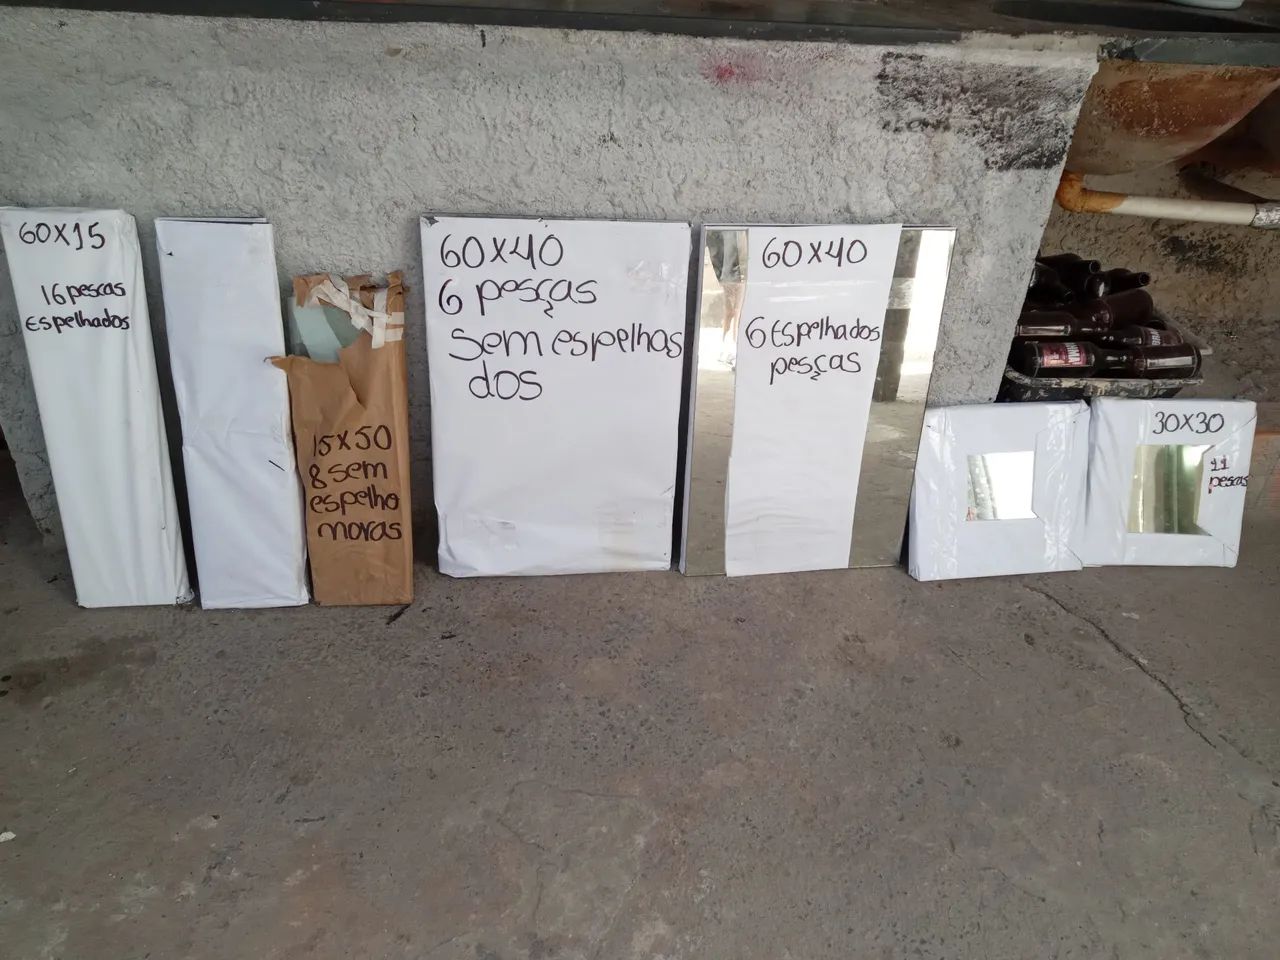 60X15
16 pescas
Espelhados
15X50
8 sem
espelho
moras
60X40
6 pesças
Sem espelhas
dos
60X40
6 Espelhados
pesças
30X30
11
pescas